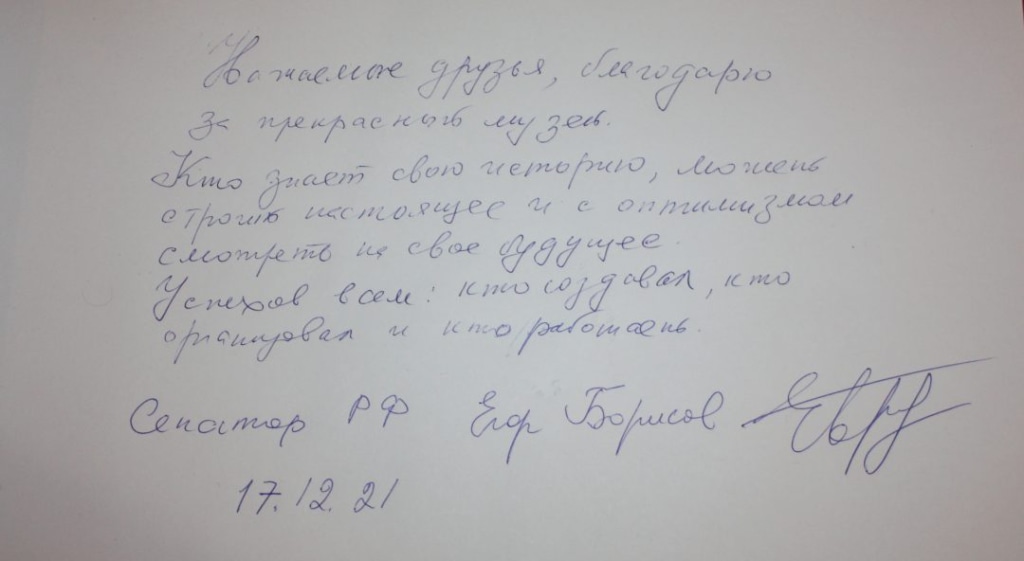 Уважаемые друзья, благодарю
за прекрасный музей.
Кто знает свою историю, может
строить настоящее и с оптимизмом
смотреть на свое будущее.
Успехов всем: кто создавал, кто
организовал и кто работает.
Сенатор РФ Егор Борисов
17.12.21